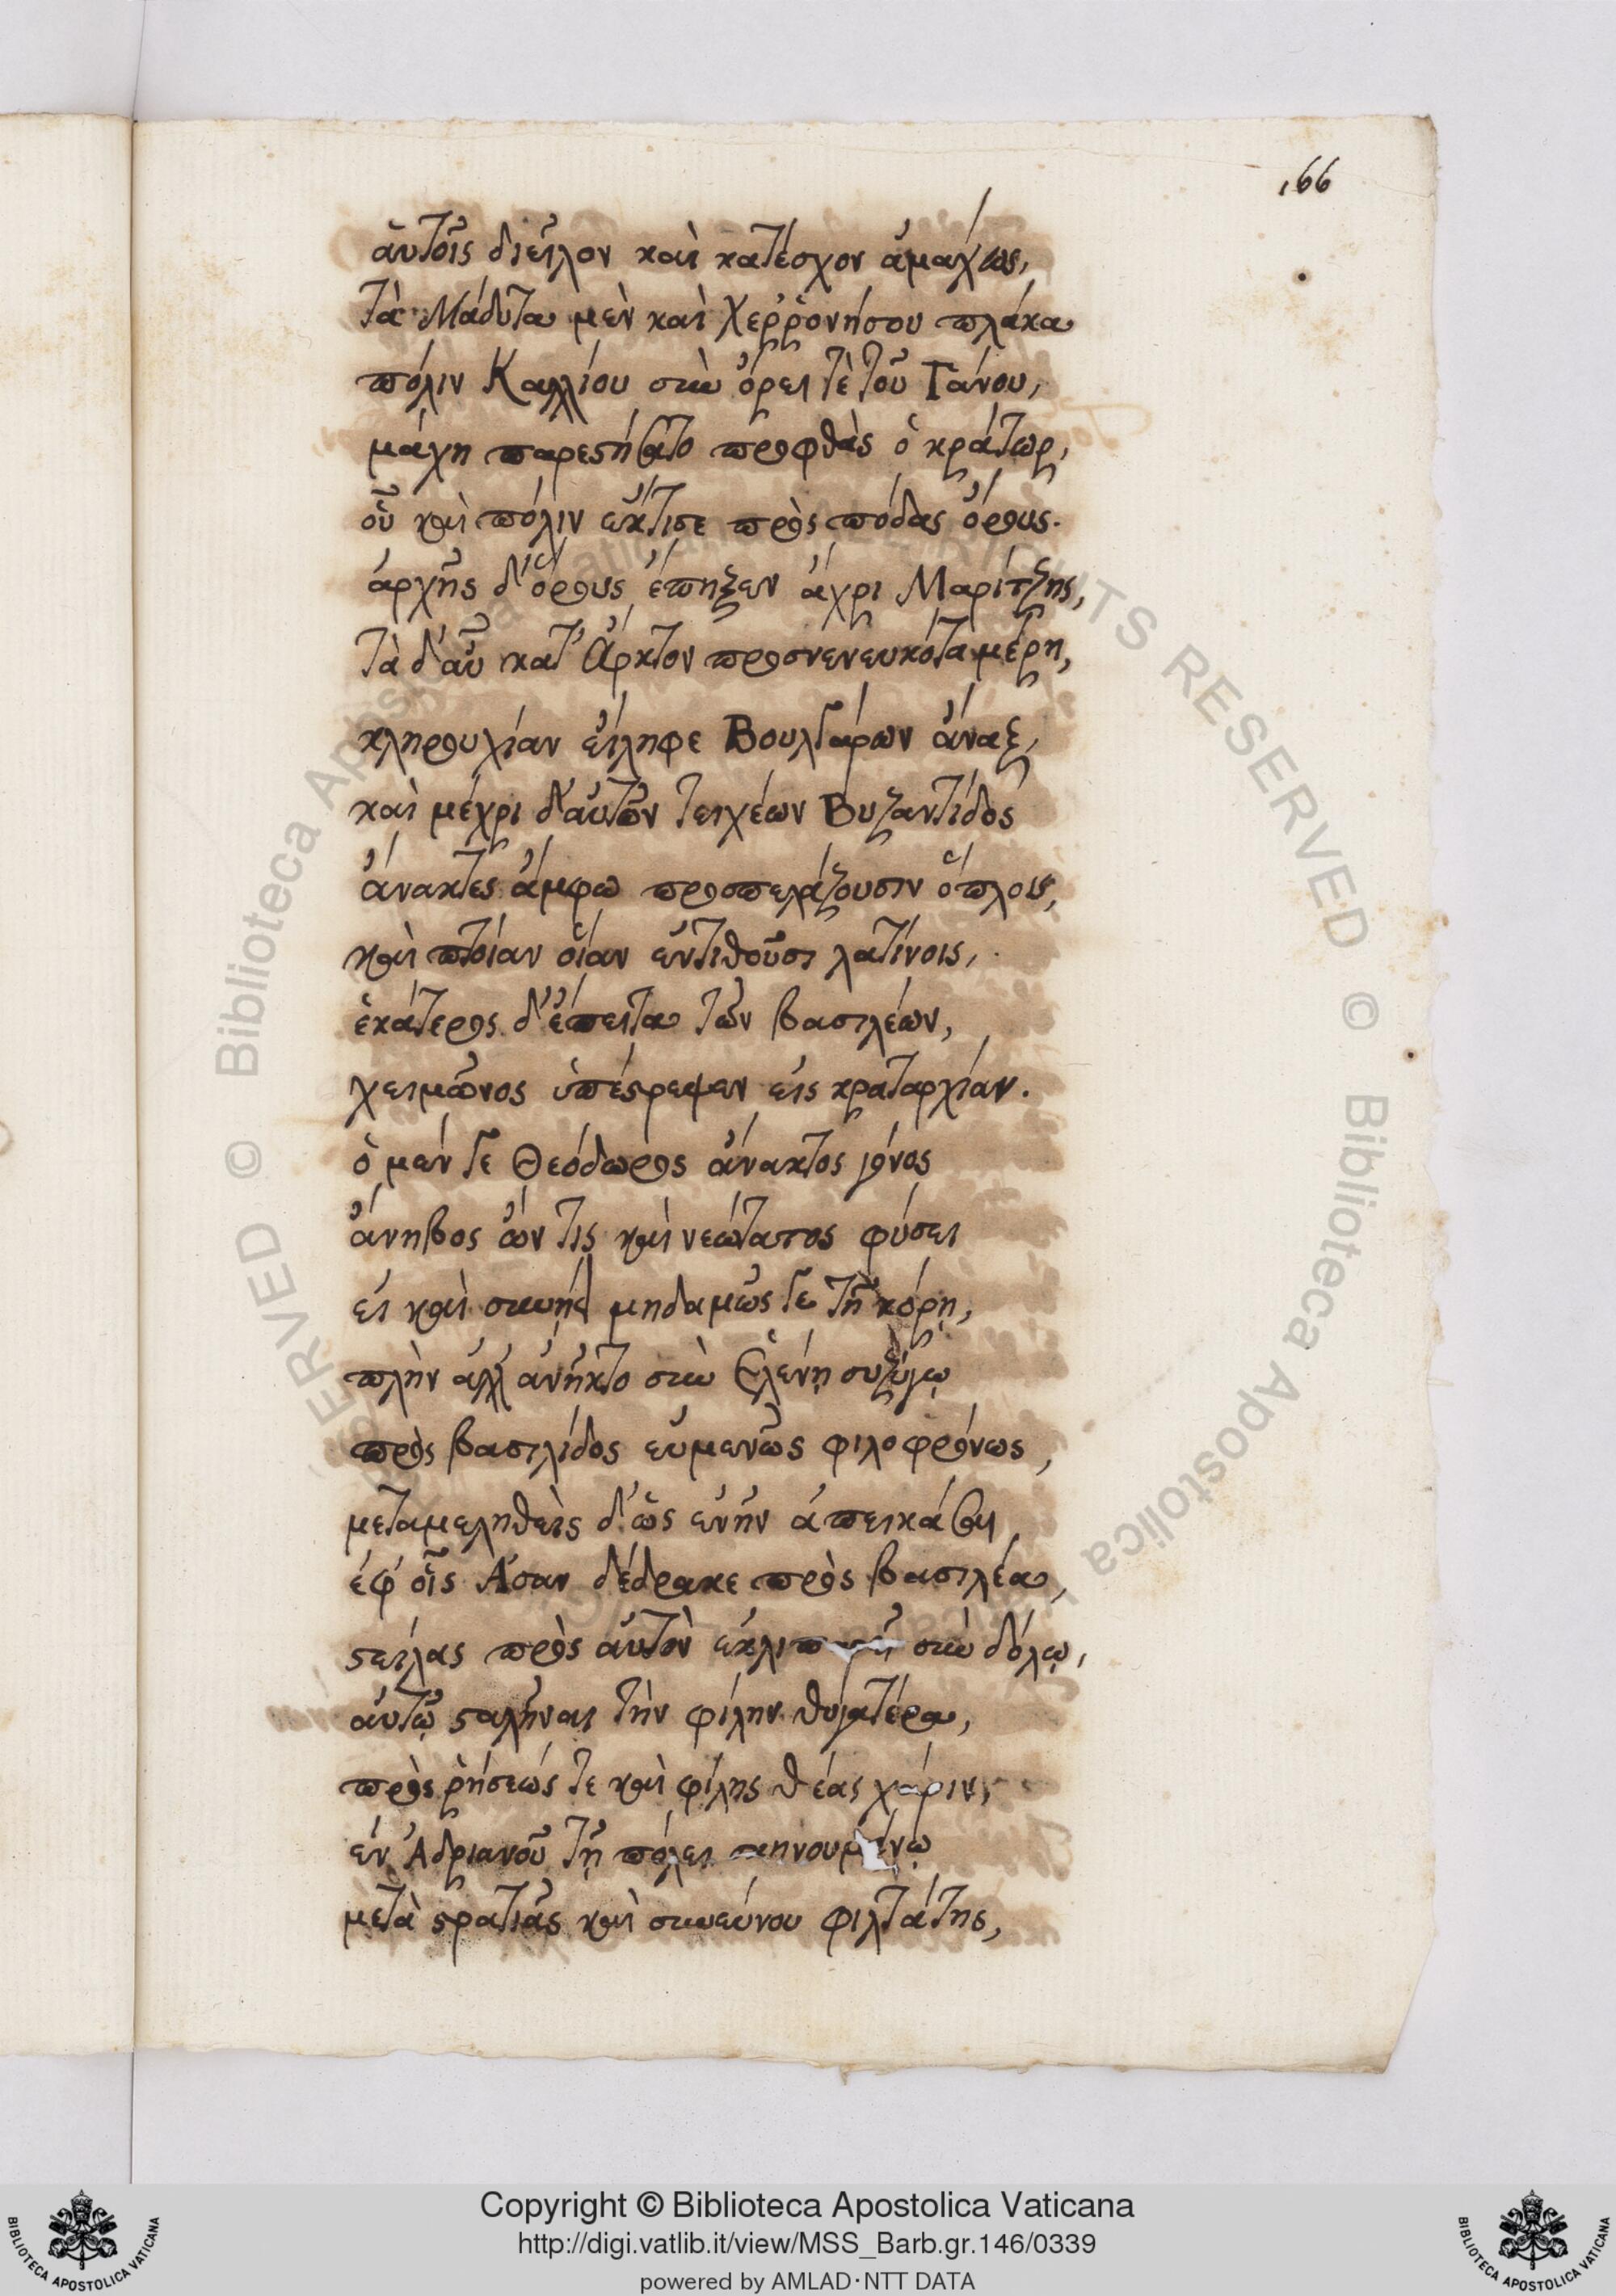 166
αὐτοῖς διεῖλον καὶ κατέσχον ἀμάχως,
τὰ Μάδυτα μὲν καὶ Χεῤῥονήσου πλάκα
πόλιν Καλλίου σὺν ὄρει τὲ τοῦ Γάνου,
μάχη παρεστήσατο προφθὰς ὁ κράτωρ,
οὗ καὶ πόλιν ἔκτισε πρὸς πόδας ὄρους.
ἀρχῆς δ' ὅρους ἔπηξεν ἄχρι Μαρίτζης,
τὰ δ' αὖ κατ' Ἄρκτον προσνενευκότα μέρη,
κληρουχίαν εἴληφε Βουλγάρων ἄναξ,
καὶ μέχρι δ' αὐτῶν τειχέων Βυζαντίδος
ἄνακτες ἄμφω προσπελάζουσιν ὅπλοις,
καὶ πτοίαν οἵαν ἐντιθοῦσι λατίνοις,
ἑκάτερος δ' ἔπειτα τῶν βασιλέων,
χειμῶνος ὑπέστρεψεν εἰς κραταρχίαν.
ὁ μέν γε Θεόδωρος ἄνακτος γόνος
ἄνηβος ὤν τις καὶ νεώτατος φύσει
εἰ καὶ συνῄει μηδαμῶς γε τῇ κόρῃ,
πλὴν ἀλλ' ἀνῆκτο σὺν Ἑλένῃ συζύγῳ
πρὸς βασιλίδος εὐμενῶς φιλοφρόνως,
μεταμεληθεὶς δ' ὡς ἐνῆν ἀπεικάσαι
ἐφ' οἷς Ἀσαν δέδρακε πρὸς βασιλέα,
στείλας πρὸς αὐτὸν σὺν δόλῳ,
αὐτῷ σταλῆναι τὴν φίλην θυγατέρα,
προσρήσεώς τε καὶ φίλης θέας χάριν,
ἐν Ἀδριανοῦ τῇ πόλει σκηνουμένῳ
μετὰ στρατιᾶς καὶ συνεύνου φιλτάτης,
Copyright © Biblioteca Apostolica Vaticana
http://digi.vatlib.it/view/MSS_Barb.gr.146/0339
powered by AMLAD·NTT DATA